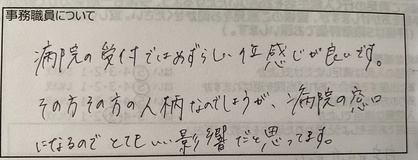 事務職員について
病院の受付ではめずらしい位感じが良いです。
その方その方の人柄なのでしょうが、病院の窓口
になるのでとてもいい影響だと思ってます。